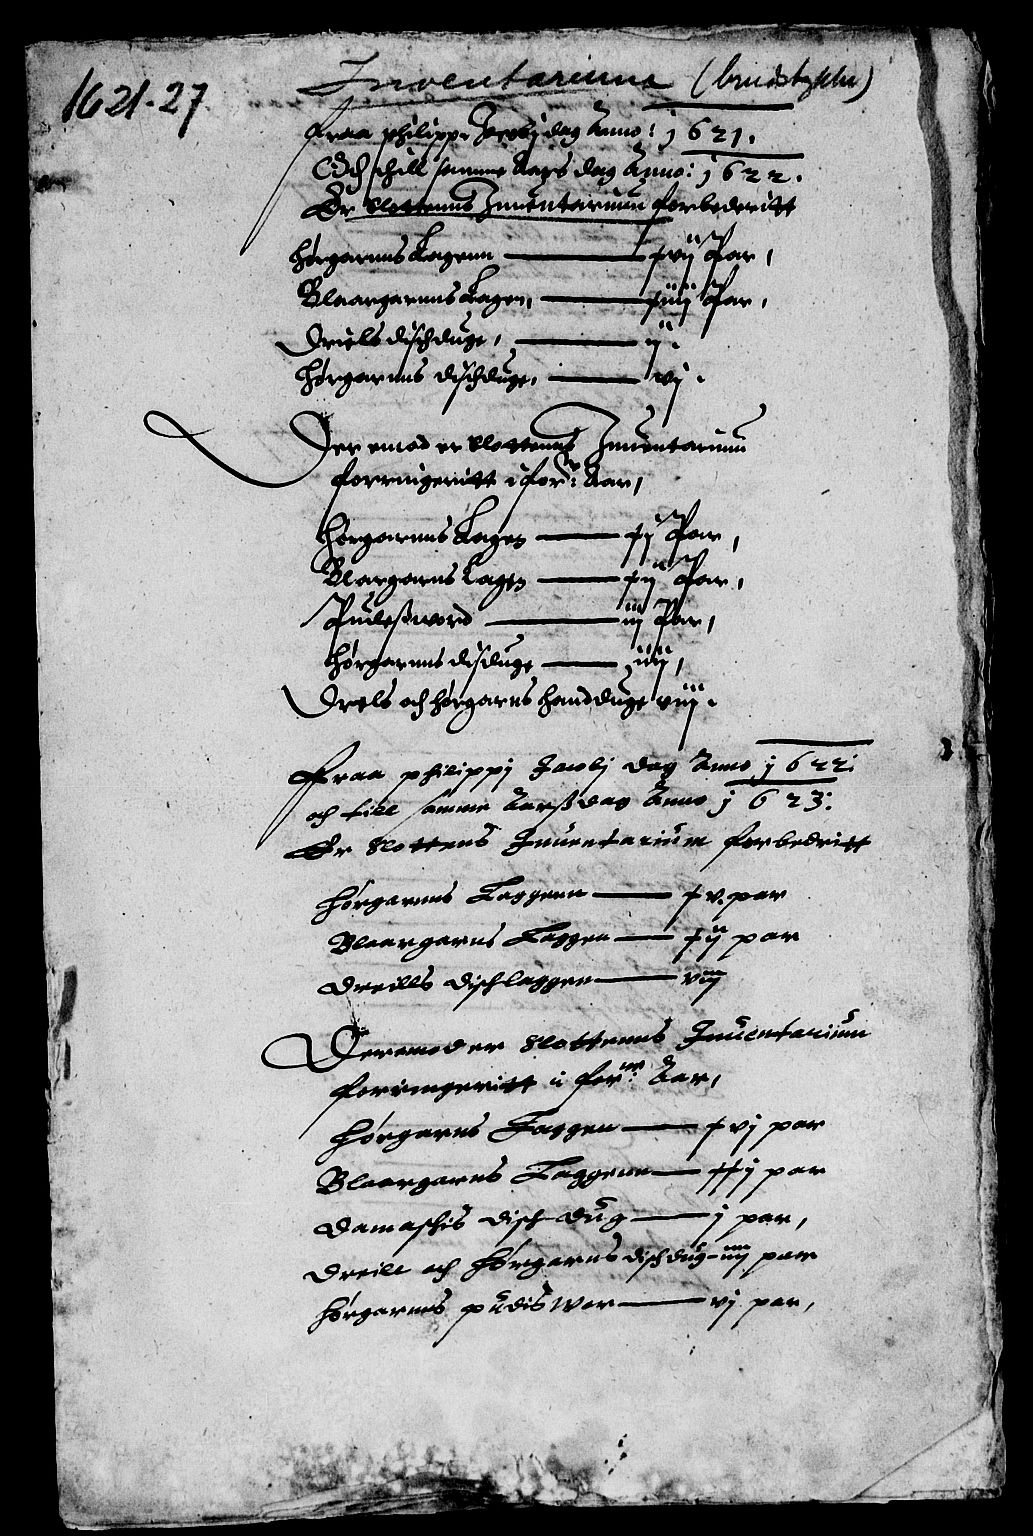 1621-27
Inventarium (brudstykke)
Fraa philippi Jacobj dag Anno: j621.
Och thill samme Aars dag Anno: j622.
Er Slottenns Jnuentarium forbederitt
Hørgarnns Lagenn — xvij Par,
Blaargarnns Lagen, — xiiij Par,
Dreiels dischduge, — ij.
Hørgarnns dischduge, — vj.
Der emod er Slottenns Jnuentarium
forringeritt i forne: Aar,
Hørgarnns Lagen — xij Par,
Blargarns Lagen — xij Par,
Pudeswaard — iij Par,
Hørgarnns disduge — iiij,
Drels och hørgarns handduge viij.
Fraa philippj Jacobj dag Anno j622:
och till samme Aarss dag Anno j623:
Er Slottens Jnuentarium forbedritt
Hørgarnns Laggenn — xv. par
Blaargarns Laggen — xij par
Dreills dischlaggen — viij
Deremod er Slottenns Jnuentarium
forringeritt i forne: Aar,
Hørgarns Laggen — xvj par
Blaargarns Laggenn — xxij par
Damaschis disch dug — j par,
Dreill och Hørgarns dischdug — iiij par
Hørgarnns pudiswor — vj. par,